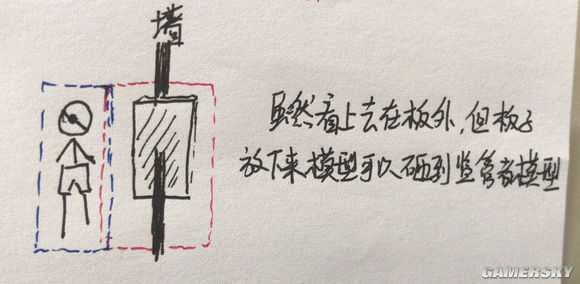 墙
虽然看上去在板外,但板子
放下来模型可以砸到监管者模型
GAMERSKY